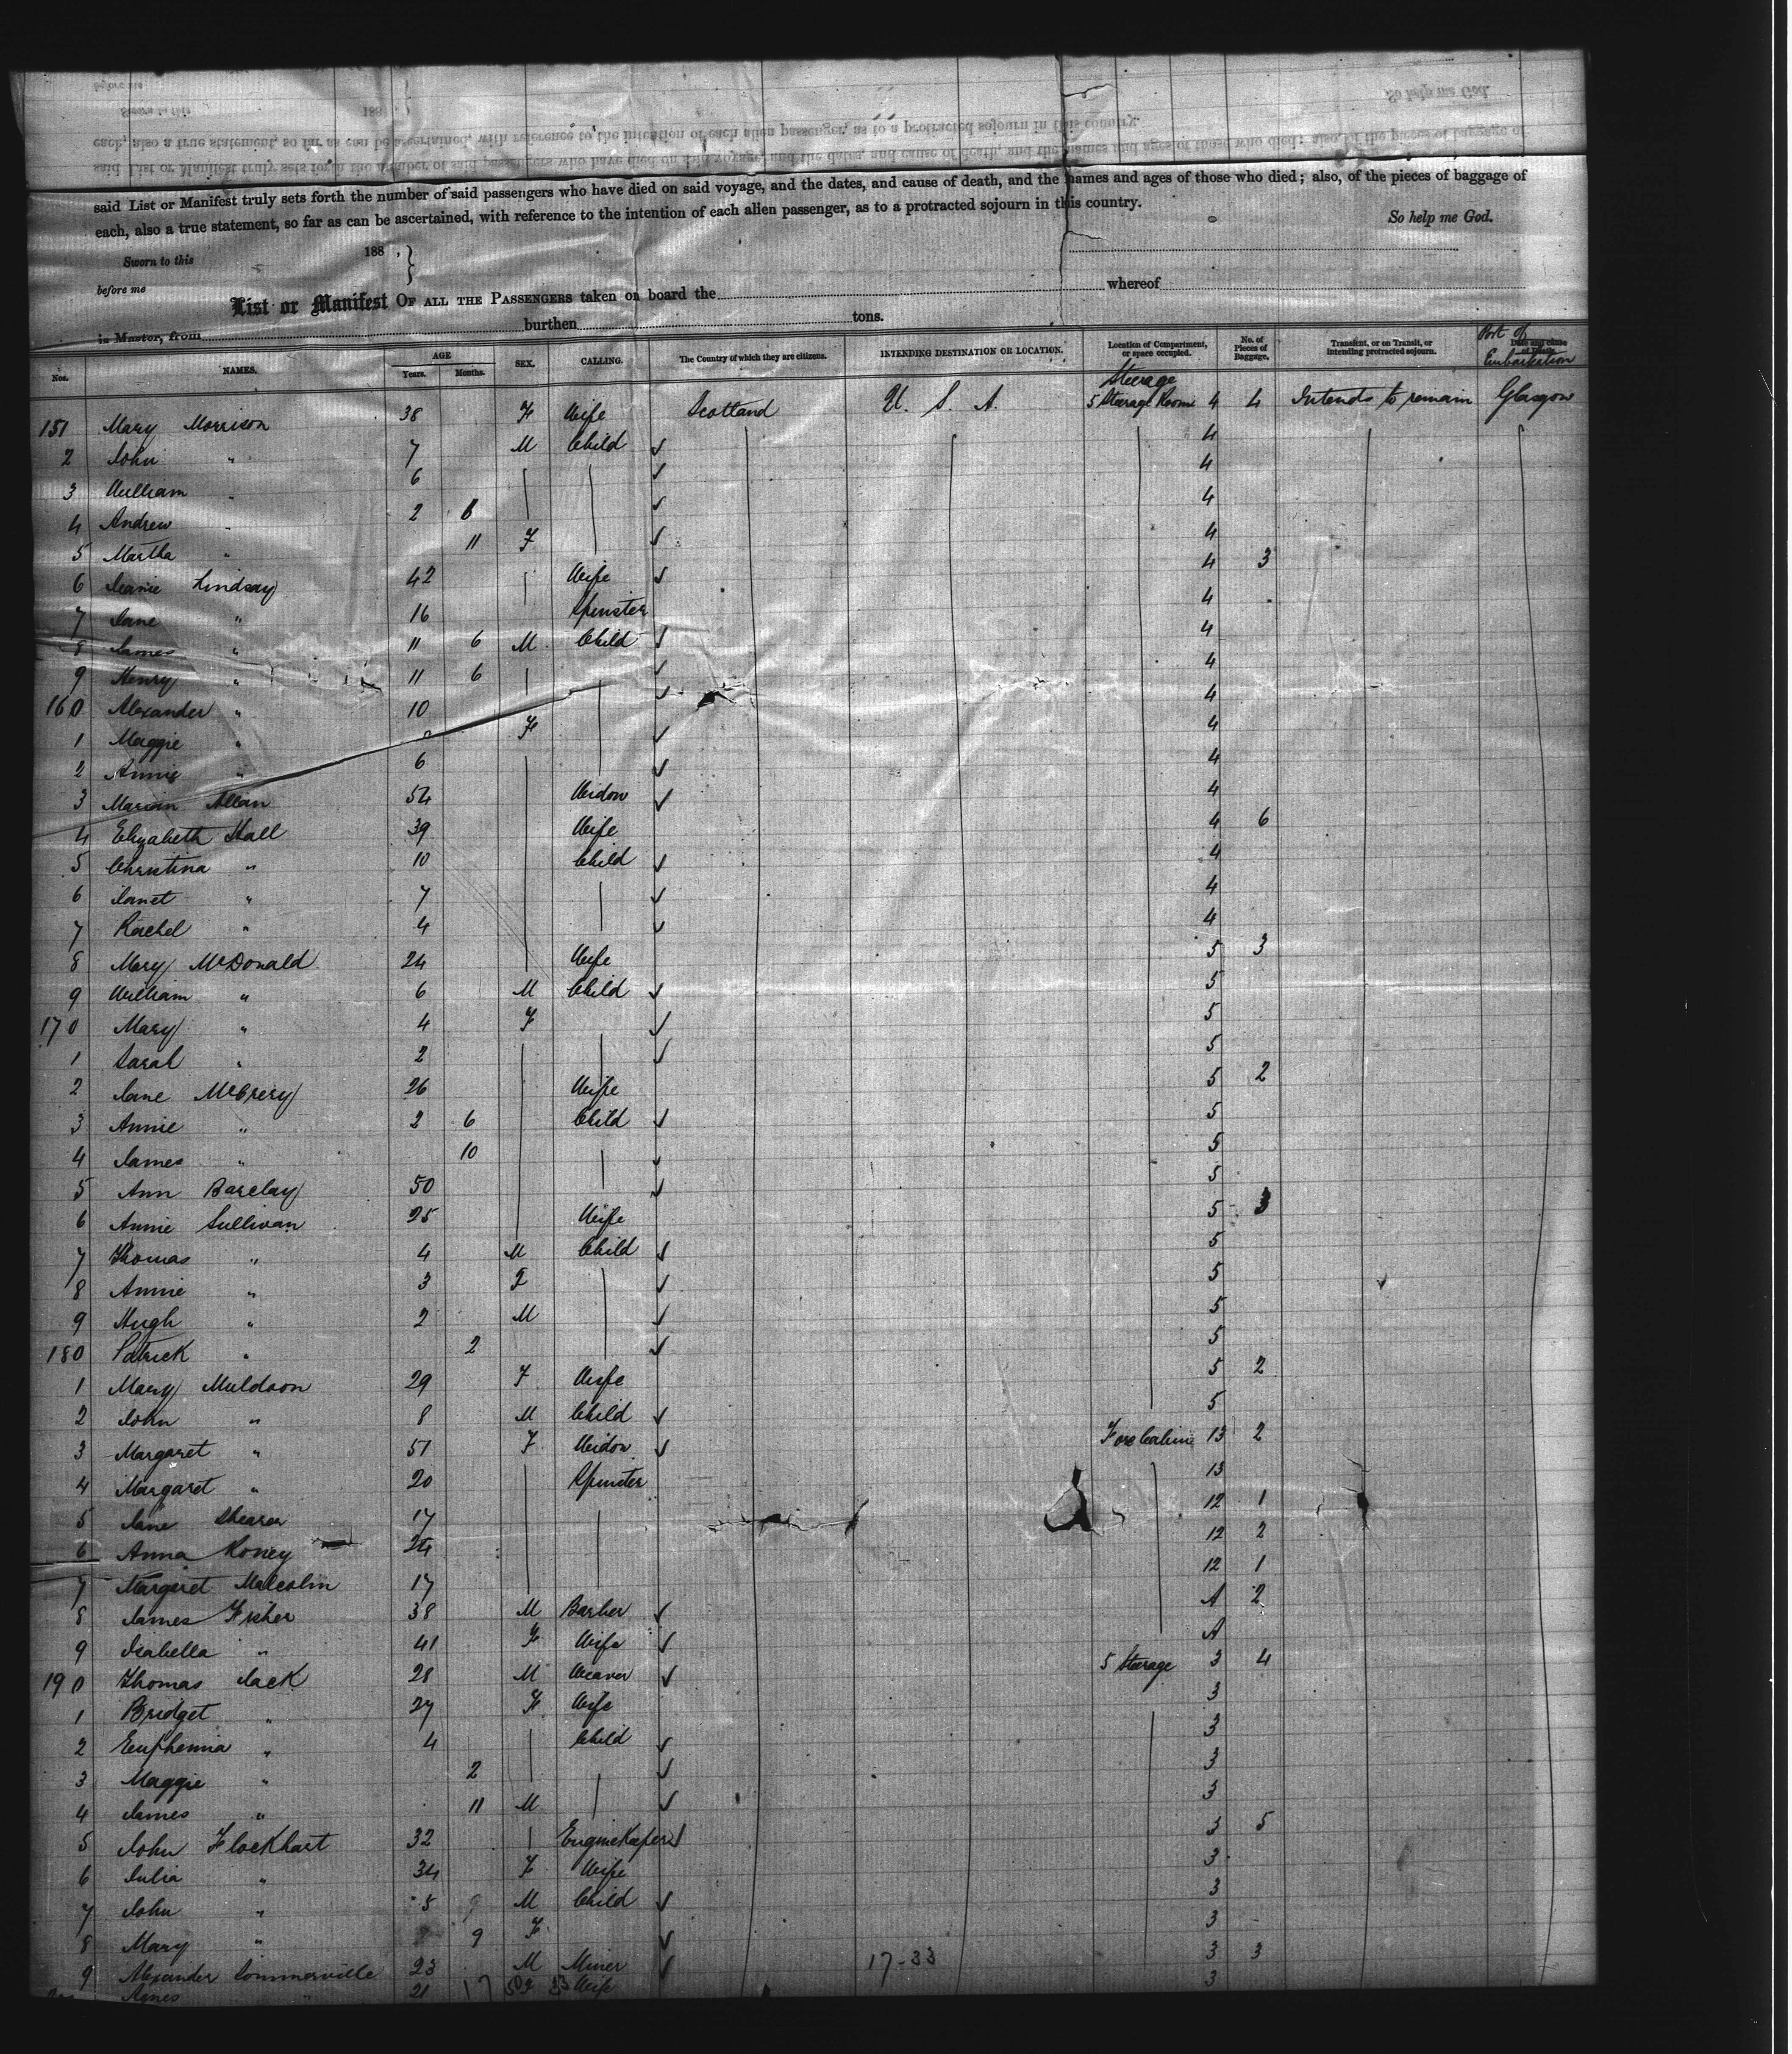 said List or Manifest truly sets forth the number of said passengers who have died on said voyage, and the dates, and cause of death, and the names and ages of those who died; also, of the pieces of baggage of
each, also a true statement, so far as can be ascertained, with reference to the intention of each alien passenger, as to a protracted sojourn in this country.
So help me God.
Sworn to this 188 , }
before me
List or Manifest OF ALL THE PASSENGERS taken on board the whereof
is Master, from burthen tons.
Nos. NAMES. AGE Years. Months. SEX. CALLING. The Country of which they are citizens. INTENDING DESTINATION OR LOCATION. Location of Compartment, or space occupied. No. of Pieces of Baggage. Transient, or on Transit, or intending protracted sojourn. Port of Embarkation
Steerage
151 Mary Morrison 38 F Wife Scotland U. S. A. 5 Steerage Room 4 4 Intends to remain Glasgow
2 John " 7 M Child 4
3 William " 6 4
4 Andrew " 2 6 4
5 Martha " 11 F 4
6 Jeanie Lindsay 42 Wife 4 3
7 Jane " 16 Spinster 4
8 James " 11 6 M Child 4
9 Henry " 11 6 4
160 Alexander " 10 4
1 Maggie " F 4
2 Annie " 6 4
3 Marion Allan 54 Widow 4
4 Elizabeth Hall 39 Wife 4 6
5 Christina " 10 Child 4
6 Janet " 7 4
7 Rachel " 4 4
8 Mary McDonald 24 Wife 5 3
9 William " 6 M Child 5
170 Mary " 4 F 5
1 Sarah " 2 5
2 Jane McCreery 26 Wife 5 2
3 Annie " 2 6 Child 5
4 James " 10 5
5 Ann Barclay 50 5
6 Annie Sullivan 25 Wife 5 3
7 Thomas " 4 M Child 5
8 Annie " 3 F 5
9 Hugh " 2 M 5
180 Patrick " 2 5
1 Mary Muldoon 29 F Wife 5 2
2 John " 8 M Child 5
3 Margaret " 51 F Widow Fore Cabin 13 2
4 Margaret " 20 Spinster 13
5 Jane Shearer 17 12 1
6 Anna Roney 24 12 2
7 Margaret Malcolm 17 12 1
8 James Fisher 38 M Barber A 2
9 Isabella " 41 F Wife A
190 Thomas Jack 28 M Weaver 5 Steerage 3 4
1 Bridget " 27 F Wife 3
2 Euphemia " 4 Child 3
3 Maggie " 2 3
4 James " 11 M 3
5 John Flockhart 32 Enginekeeper 3 5
6 Julia " 34 F Wife 3
7 John " 5 M Child 3
8 Mary " 9 F 3
9 Alexander Sommerville 23 M Miner 17-33 3 3
Agnes " 21 F Wife 3